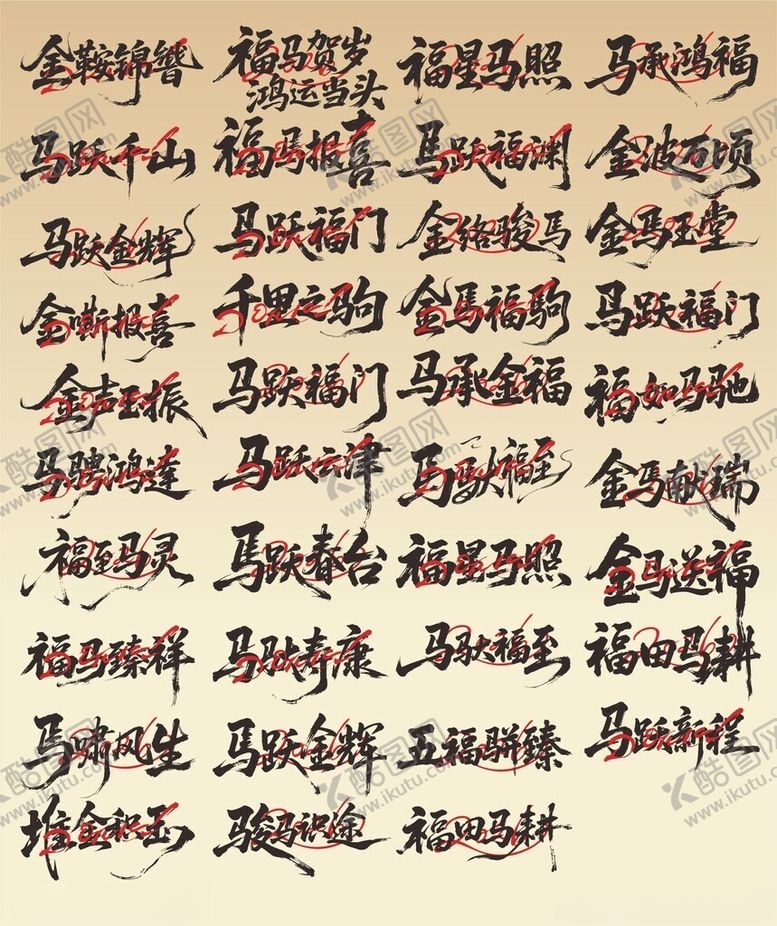 金鞍锦辔 福马贺岁 鸿运当头 福星马照 马承鸿福
马跃千山 福马报喜 马跃福渊 金波万顷
马跃金辉 马跃福门 金络骏马 金马玉堂
金嘶报喜 千里之驹 金马福驹 马跃福门
金声玉振 马跃福门 马承金福 福如马驰
马骋鸿达 马跃云津 马驮福至 金马献瑞
福至马灵 马跃春台 福星马照 金马送福
福马臻祥 马驮寿康 马驮福至 福田马耕
马啸风生 马跃金辉 五福骈臻 马跃新程
堆金积玉 骏马识途 福田马耕
酷图网
www.ikutu.com